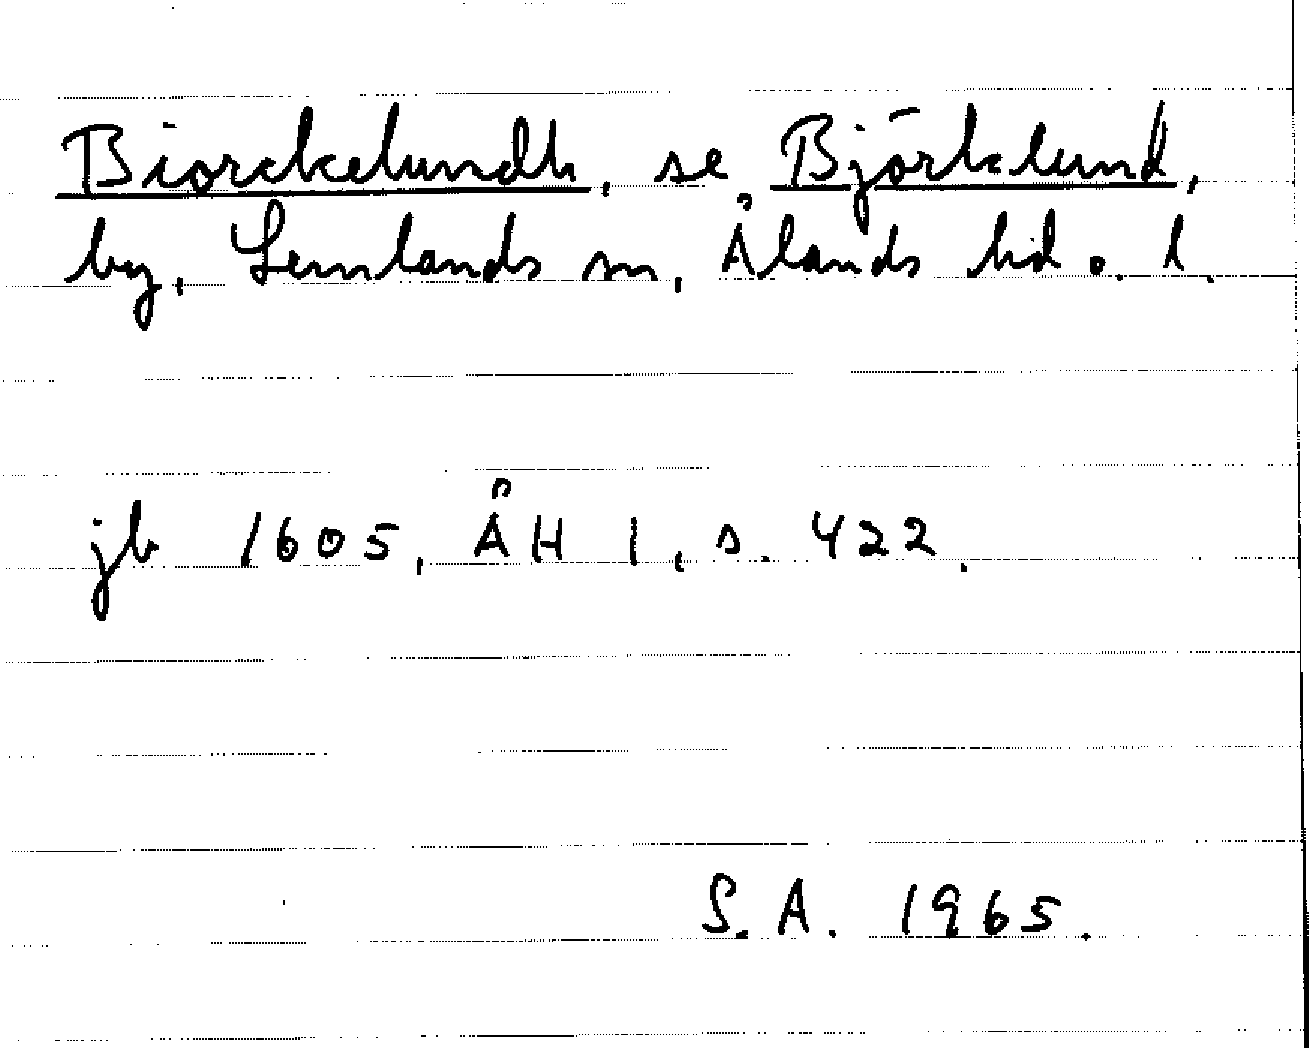 Biorckelundh, se Björklund,
by, Lemlands sn, Ålands hd o. l.
jb 1605, ÅH 1, s. 422.
S. A. 1965.